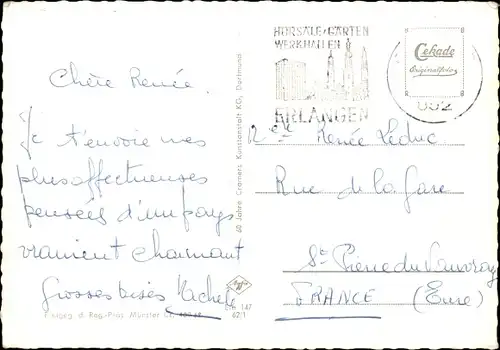 Chère Renée.
Je t'envoie mes
plus affectueuses
pensées d'un pays
vraiment charmant
Grosses bises Rachel
60 Jahre Cramers Kunstanstalt KG, Dortmund
HÖRSÄLE/GÄRTEN
WERKHALLEN
ERLANGEN
Cekade
Originalfoto
Renée Leduc
Rue de la Gare
St Pierre du Vauvray
FRANCE (Eure)
147
62/1
d. Reg.-Präs. Münster